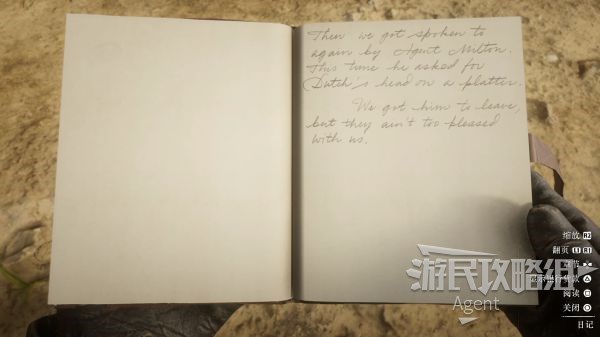 Then we got spoken to
again by Agent Milton.
This time he asked for
Dutch's head on a platter.
We got him to leave,
but they ain't too pleased
with us.
缩放 R2
翻页 L1 R1
阅读
关闭
日记
游民攻略组
Agent